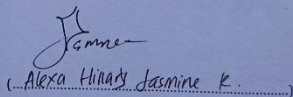 Jasmine
(Alexa Hinary Jasmine R.)